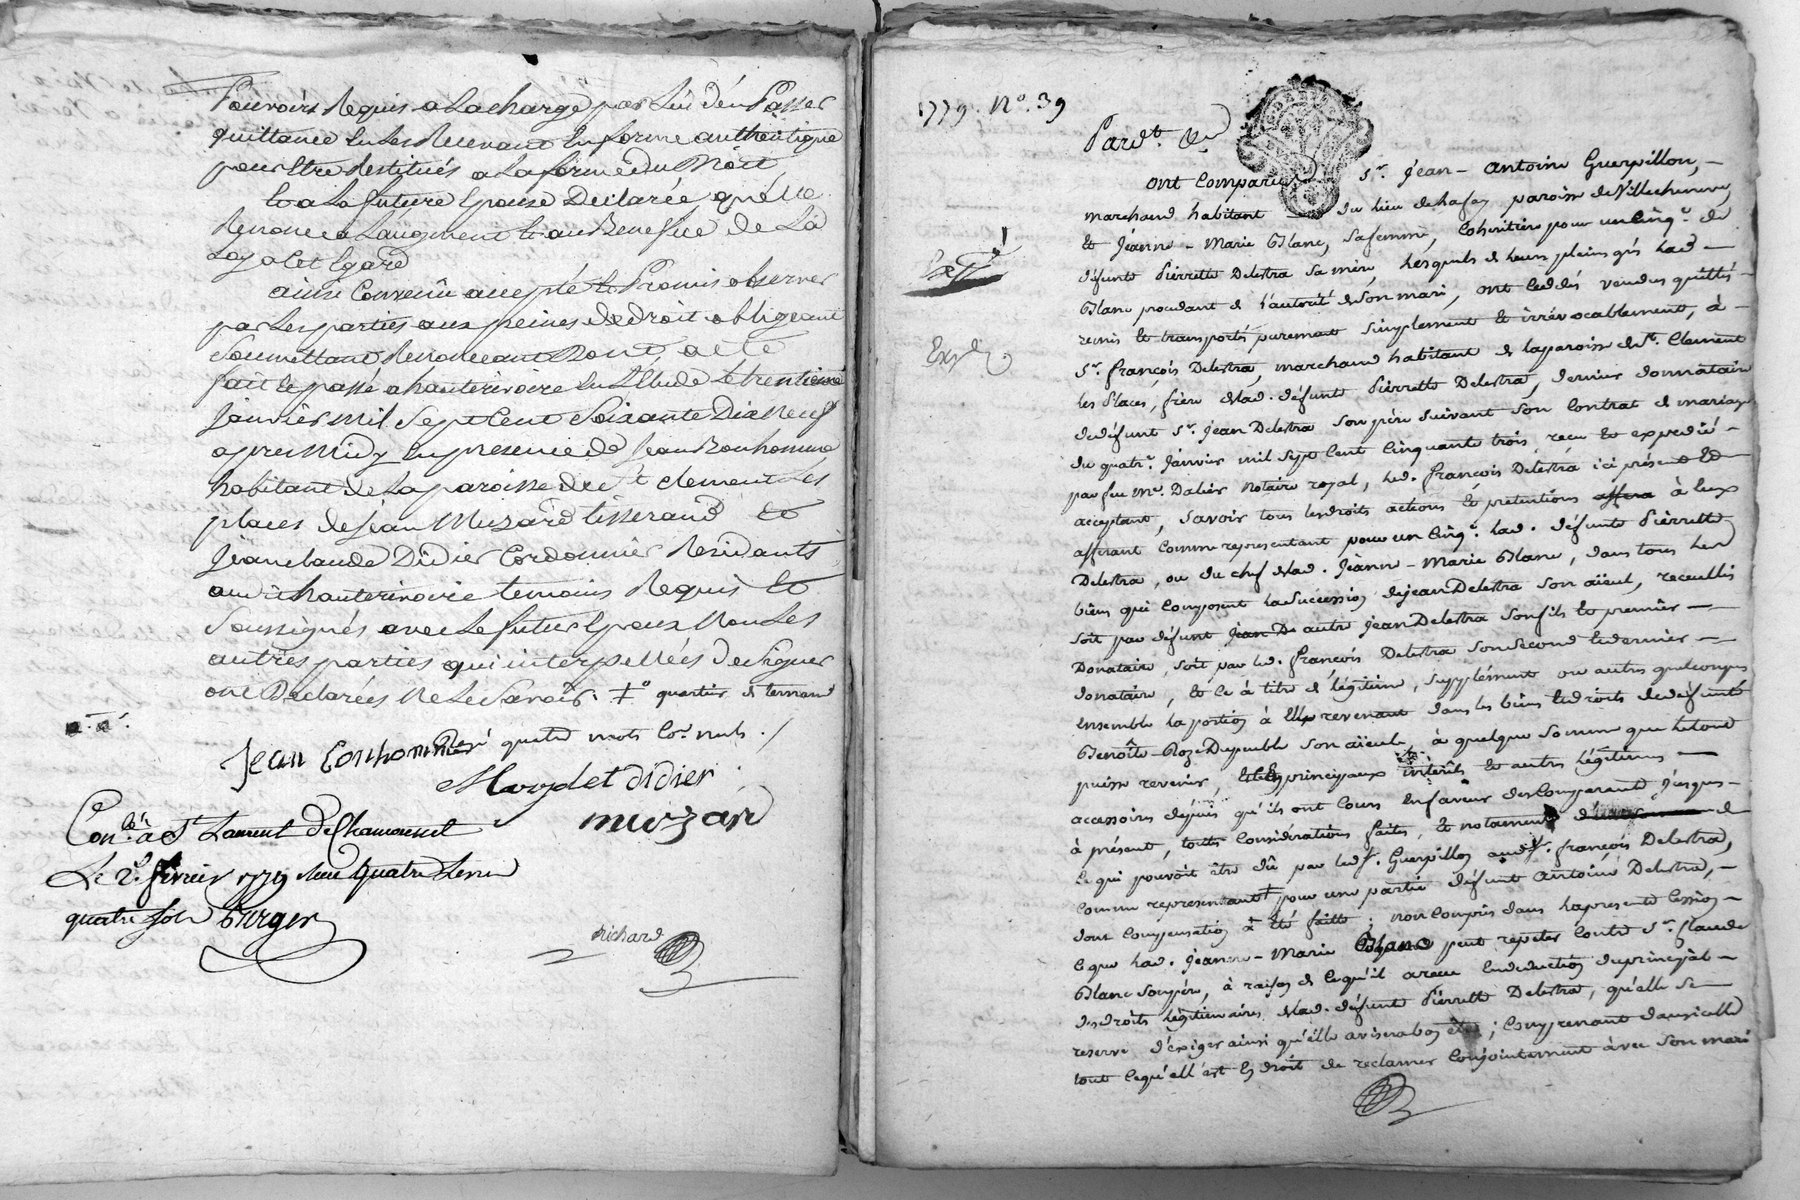 Pouvoirs Requis a La charge par Lui d'en Passer
quittance en Les Recevant En forme authentique
pour Etre Restitués a La forme du Droit
Et a La future Epouse Declarée qu'elle
Renonce a L'augment Et au Benefice de La
Loy a Cet Egard
ainsi Convenu accepté Et Promis observer
par Les parties aux peines de droit obligeant
Soumettant Renonceant Dont acte
fait Et passé a hauterivoire En L'Etude Le trentieme
Janvier Mil Sept Cent Soixante Dix Neuf
apres Midy En presence de Jean Bonhomme
habitant de La paroisse de St clement Les
places de Jean Muzard tisserand Et
Jean claude Didier Cordonnier Residants
aud. hauterivoire temoins Requis Et
Soussignés avec Le futur Epoux Non Les
autres parties qui interpellées de Signer
ont Declarées Ne Le Savoir. quartier de ternand
quatre mots nuls
Jean Bonhomme
Maydet Didier
muzar
Con.lé à St Laurent De Chamousset
Le 2e fevrier 1779 Reçu Quatre Livres
quatre sols Berger
Richard
1779. No. 39
Pard.t &c.
ont Comparu Sr. Jean - Antoine Guerpillon,
marchand habitant du lieu de paroisse de Villechenéve,
Et Jeanne - Marie Blanc, Sa femme, Cohéritière pour un Cinq.e de
défunte Pierrette Delestra Sa mère, Lesquels de leurs pleins grés lad.
Blanc procedant de l'autorité de Son mari, ont Cedés vendus quittés
remis Et transportés purement Simplement Et irrévocablement, à
Sr. François Delestra, marchand habitant de la paroisse de St. Clement
les Places, frère de lad. défunte Pierrette Delestra, dernier donnataire
de défunt Sr. Jean Delestra Son père Suivant Son Contrat de mariage
du quatr.e Janvier mil Sept Cent Cinquante trois reçu Et expedié
par feu Me. Dalier Notaire royal, led. François Delestra ici présent Et
acceptant, Savoir tous les droits actions Et pretentions à Eux
afferant Comme representant pour un Cinq.e lad. défunte Pierrette
Delestra, ou du chef de lad. Jeanne - Marie Blanc, dans tous les
biens qui Composent la Succession de Jean Delestra Son aïeul, recueillis
Soit par défunt autre Jean Delestra Son fils Et premier
Donataire, Soit par led. François Delestra Son Second Et dernier
donataire, Et Ce à titre de légitime, Supplément ou autres quelconques
Ensemble la portion à Elle revenant dans les biens Et droits de defunte
Benoîte Son aïeule, à quelque Somme que le tout
puisse revenir, Et les principaux intérêts Et autres légitimes
accessoires dépuis qu'ils ont Cours En faveur des Comparants Jusques
à présent, toutes Considérations faites, Et notamment de
Ce qui pouvoit être dû par led. Sr. Guerpillon aud. Sr. François Delestra,
Comme representant pour une partie défunt Antoine Delestra,
dont Compensation à Eté faite; non Compris dans la presente Cession
Ce que lad. Jeanne - Marie Blanc peut repeter Contre Sr. Claude
Blanc Son père, à raison de Ce qu'il a reçu En deduction du principal
des droits légitimaires de lad. défunte Pierrette Delestra, qu'elle Se
reserve d'exiger ainsi qu'elle avisera bon être; Comprenant dans icelle
tout Ce qu'ell'est En droit de reclamer Conjointement avec Son mari